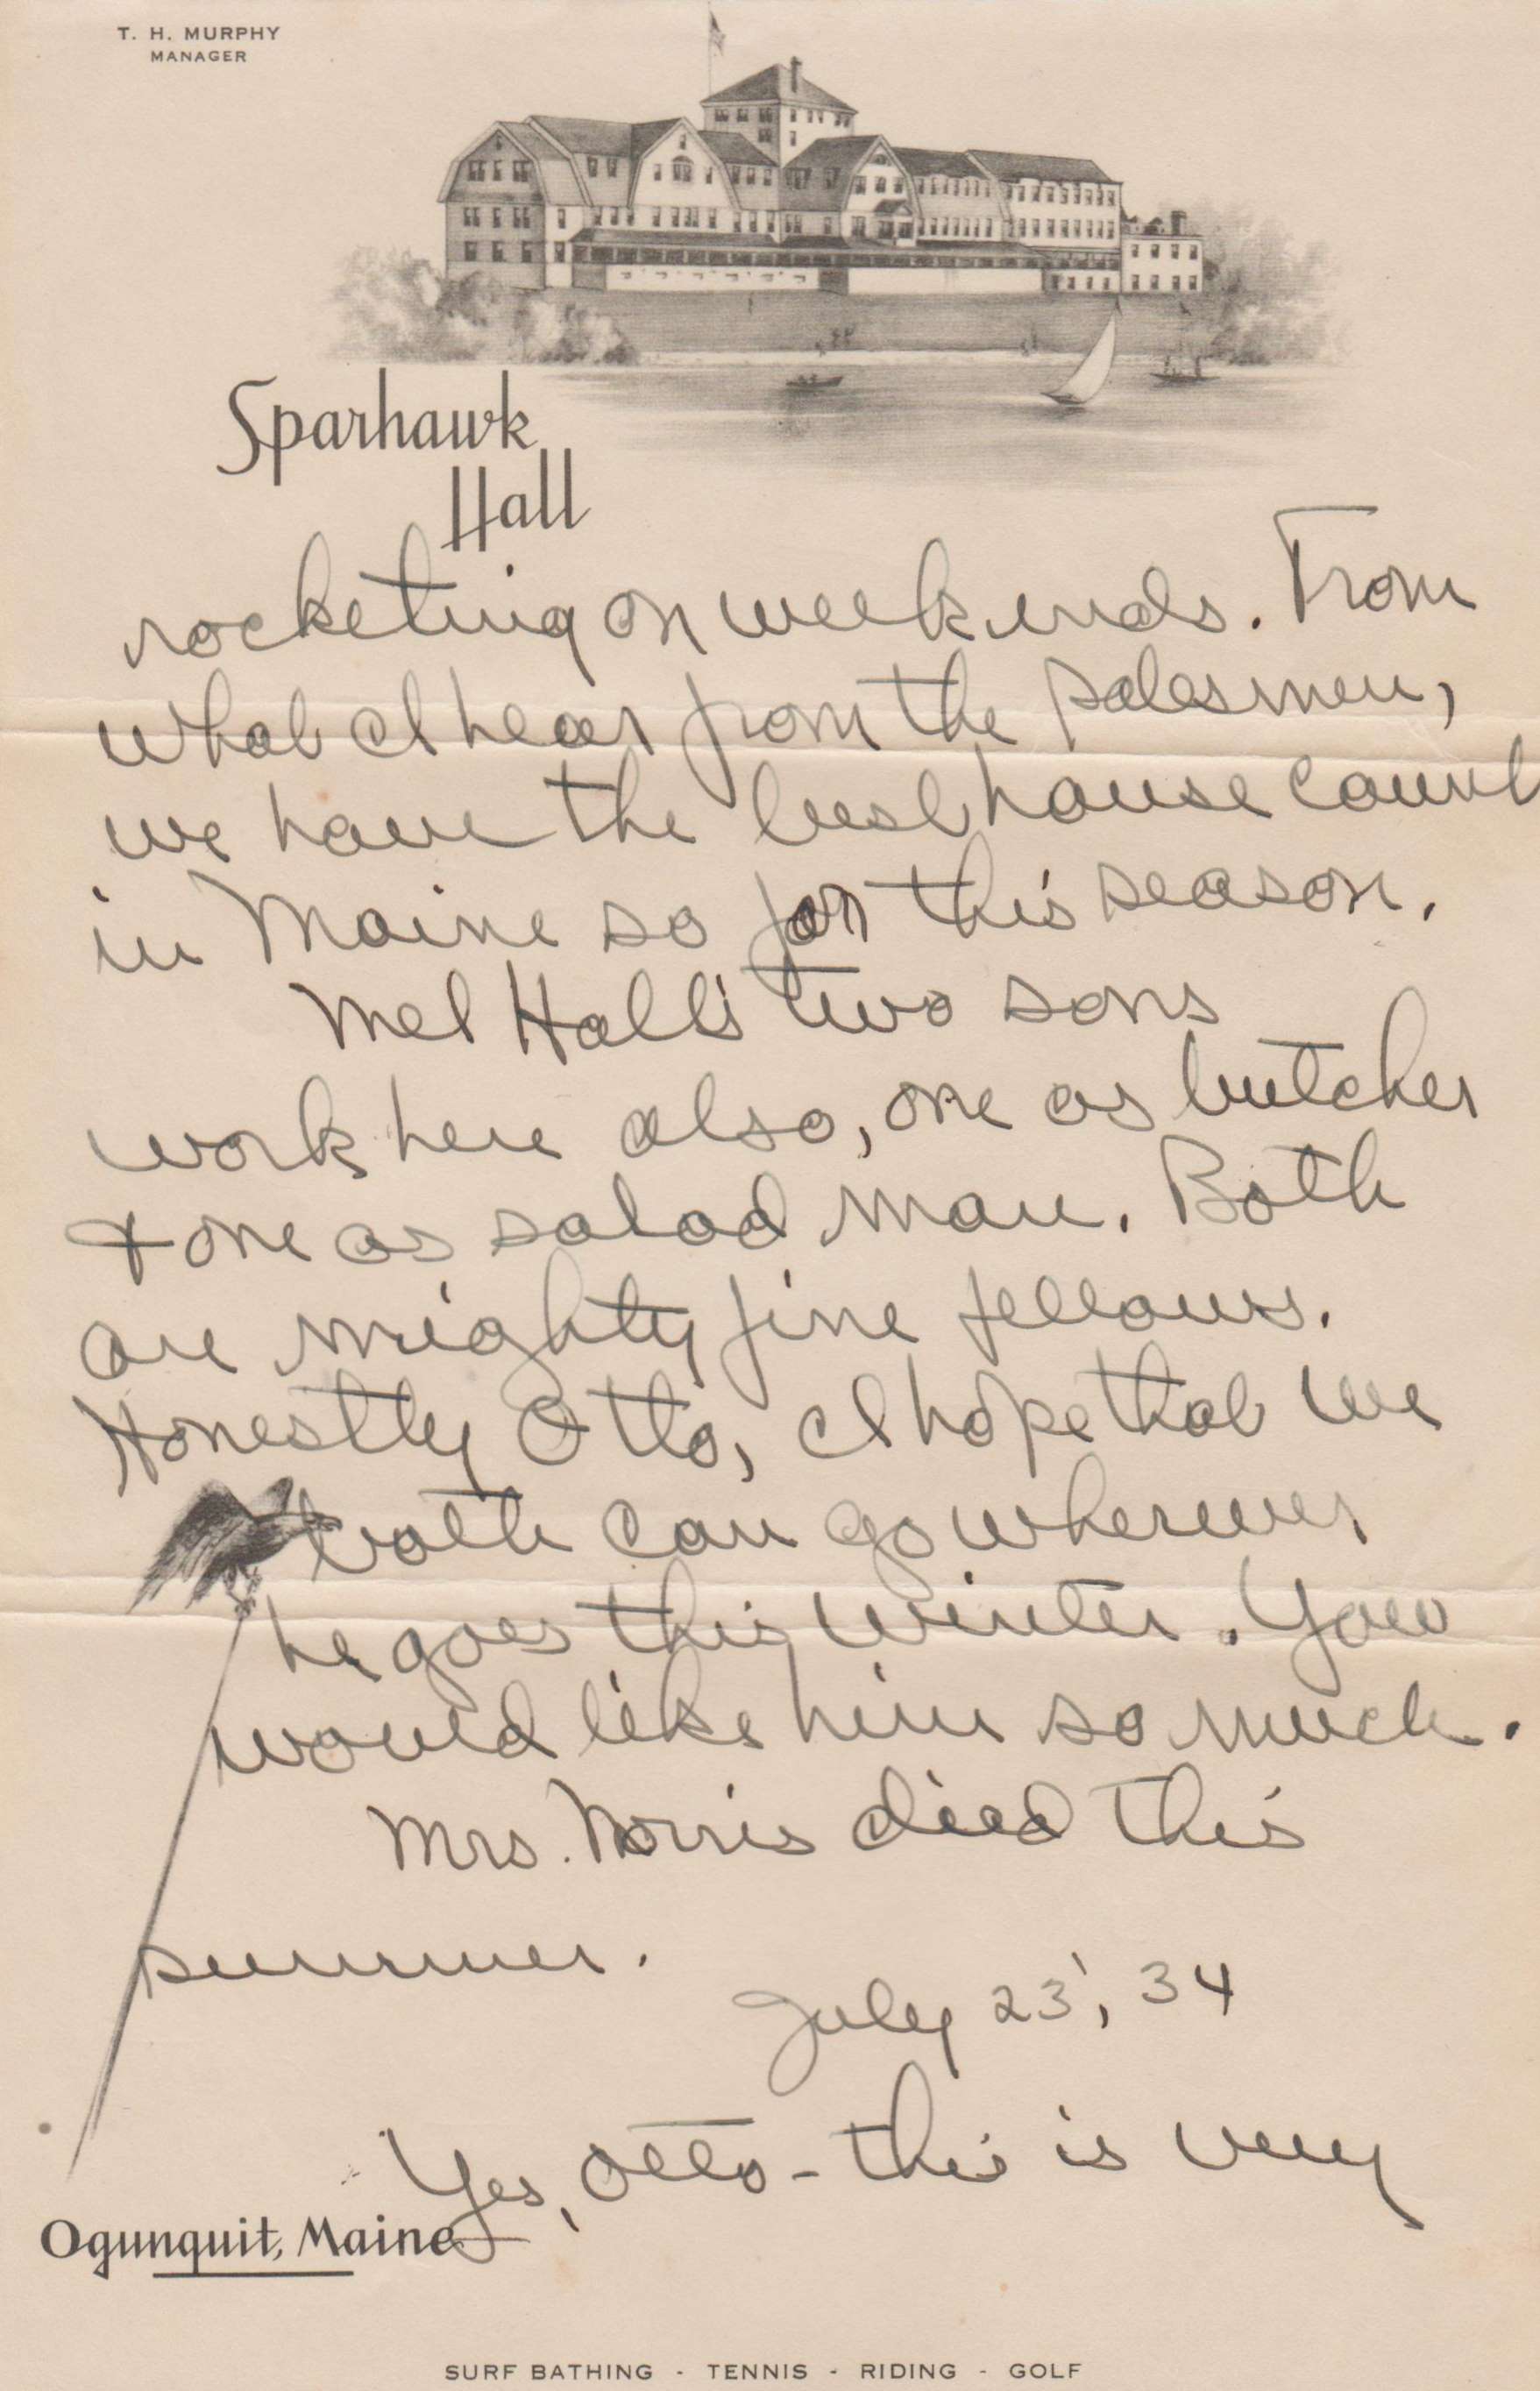 T. H. MURPHY
MANAGER
Sparhawk
Hall
rocketing on week ends. From
what I hear from the salesmen,
we have the best house count
in Maine so far this season.
Mel Hall's two sons
work here also, one as butcher
& one as salad man. Both
are mighty fine fellows.
Honestly Otto, I hope that we
both can go wherever
he goes this winter. You
would like him so much.
Mrs. Norris died this
summer.
July 23', 34
Yes, Otto - this is very
Ogunquit, Maine
SURF BATHING - TENNIS - RIDING - GOLF